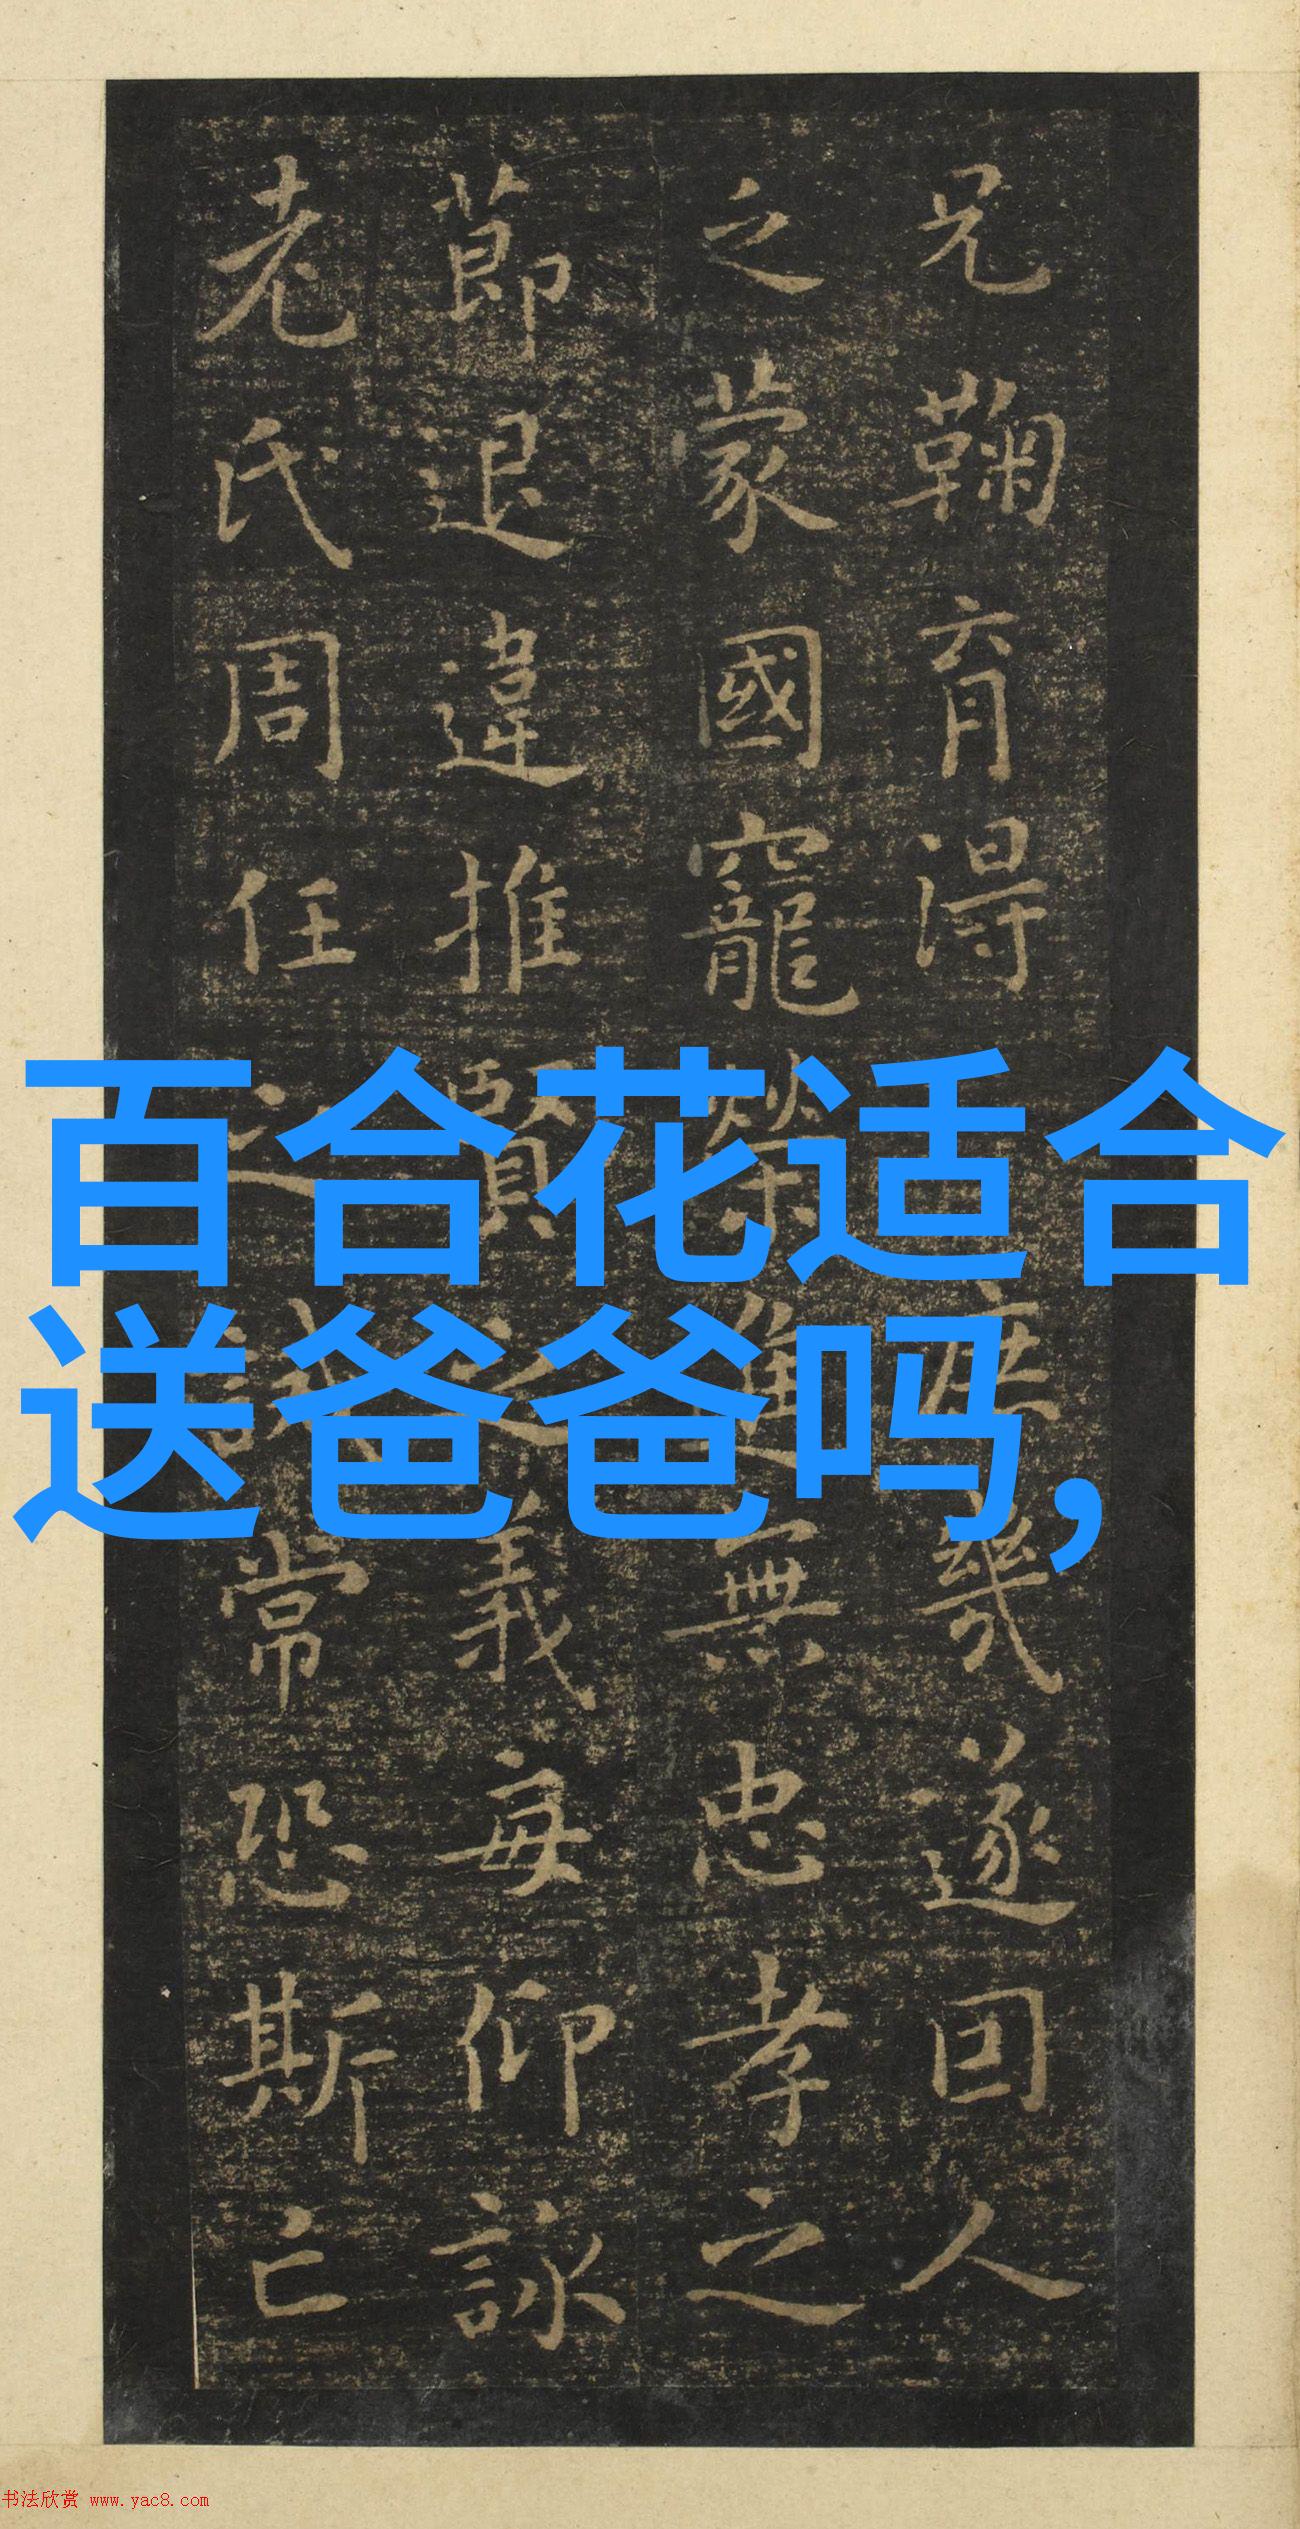 兄鞠育得庶幾遂回人
之蒙國寵榮進無忠孝之
莭退違推賢之義每仰詠
老氏周任之誡常恐斯亡
百合花适合
送爸爸吗,
书法欣赏 www.yac8.com